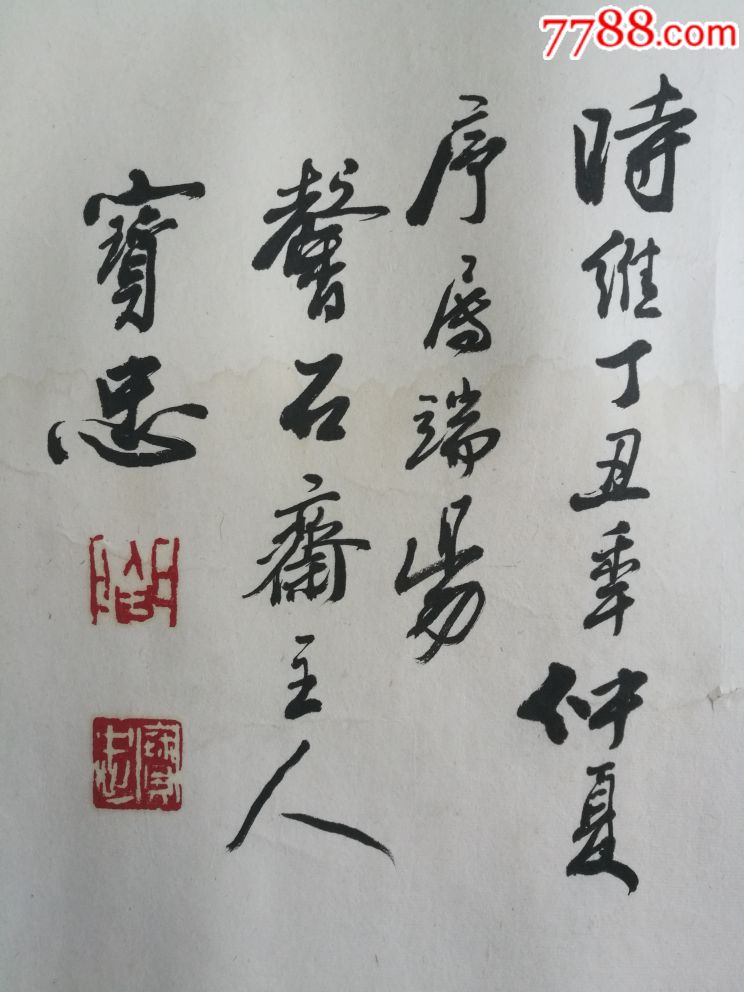 7788.com
時維丁丑年仲夏
序屬端陽
馨石齋主人
寶忠